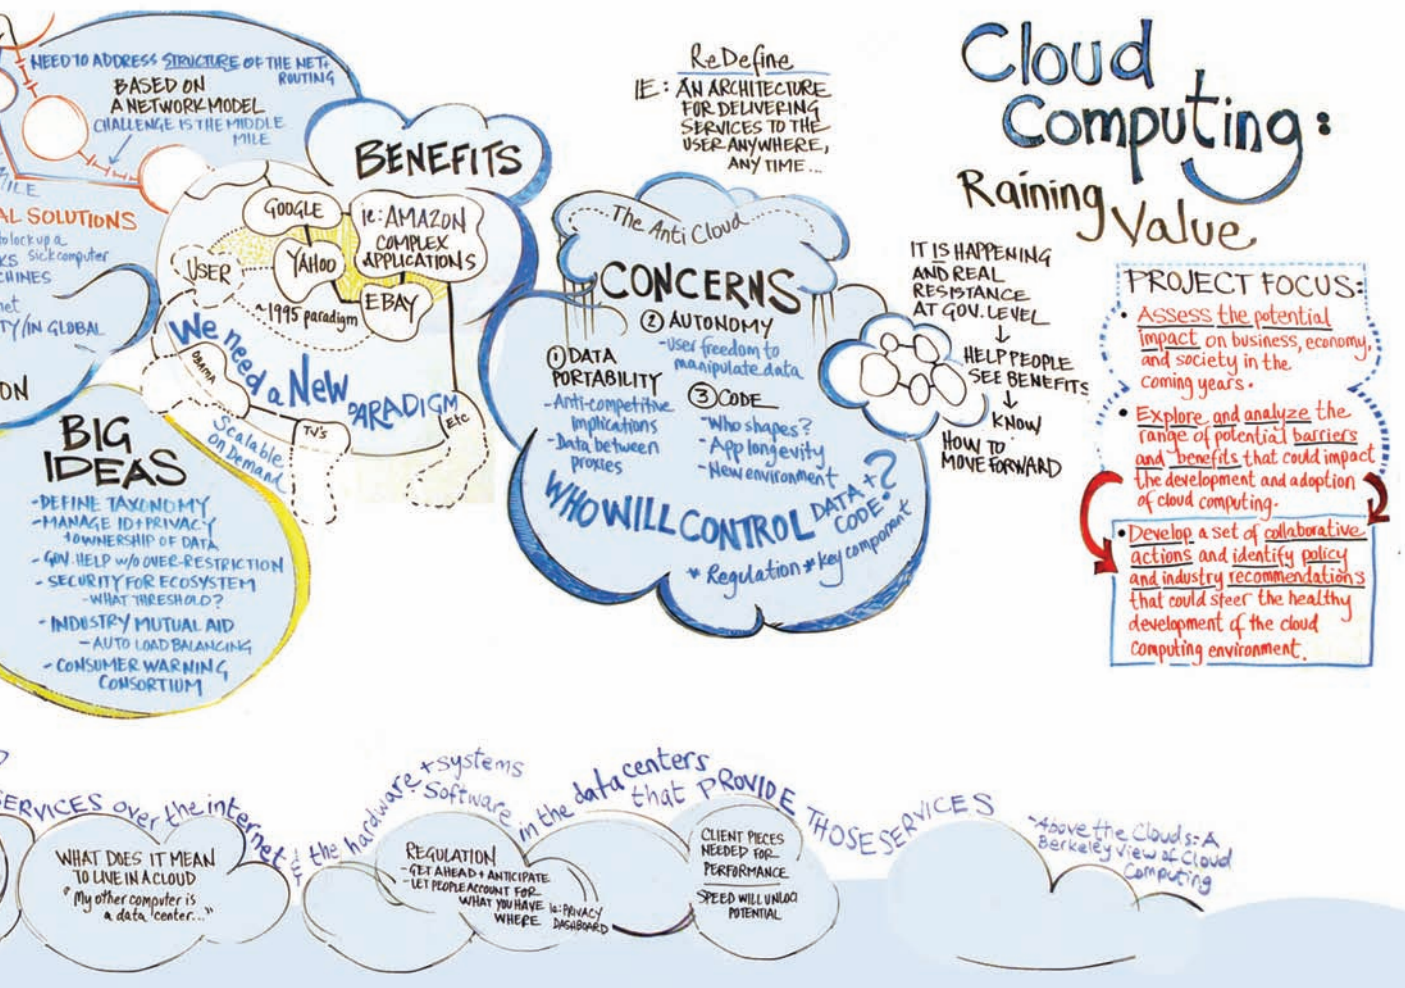 NEED TO ADDRESS STRUCTURE OF THE NET+
ROUTING
BASED ON
A NETWORK MODEL
CHALLENGE IS THE MIDDLE
MILE
AL SOLUTIONS
to lock up a
sick computer
CHINES
net
TY/IN GLOBAL
ON
BENEFITS
GOOGLE
ie: AMAZON
COMPLEX
APPLICATIONS
USER
YAHOO
EBAY
~1995 paradigm
We need a New PARADIGM
OBAMA
TV's
Etc
Scalable
on Demand
BIG
IDEAS
-DEFINE TAXONOMY
-MANAGE ID+PRIVACY
+OWNERSHIP OF DATA
-GOV. HELP w/o OVER-RESTRICTION
-SECURITY FOR ECOSYSTEM
-WHAT THRESHOLD?
-INDUSTRY MUTUAL AID
-AUTO LOAD BALANCING
-CONSUMER WARNING
CONSORTIUM
ReDefine
IE: AN ARCHITECTURE
FOR DELIVERING
SERVICES TO THE
USER ANYWHERE,
ANY TIME...
The Anti Cloud
CONCERNS
① DATA
PORTABILITY
-Anti-competitive
implications
-Data between
proxies
② AUTONOMY
-user freedom to
manipulate data
③ CODE
-Who shapes?
-App longevity
-New environment
WHO WILL CONTROL DATA +
CODE?
* Regulation * key component
IT IS HAPPENING
AND REAL
RESISTANCE
AT GOV. LEVEL
↓
HELP PEOPLE
SEE BENEFITS
↓
KNOW
HOW TO
MOVE FORWARD
Cloud
Computing:
Raining
Value
PROJECT FOCUS:
• Assess the potential
impact on business, economy,
and society in the
coming years.
• Explore and analyze the
range of potential barriers
and benefits that could impact
the development and adoption
of cloud computing.
• Develop a set of collaborative
actions and identify policy
and industry recommendations
that could steer the healthy
development of the cloud
computing environment.
SERVICES over the internet & the hardware + systems
Software in the data centers
that PROVIDE THOSE SERVICES
-Above the Clouds: A
Berkeley View of Cloud
Computing
WHAT DOES IT MEAN
TO LIVE IN A CLOUD
"My other computer is
a data center..."
REGULATION
-GET AHEAD + ANTICIPATE
-LET PEOPLE ACCOUNT FOR
WHAT YOU HAVE
WHERE
ie: PRIVACY
DASHBOARD
CLIENT PIECES
NEEDED FOR
PERFORMANCE
SPEED WILL UNLOCK
POTENTIAL